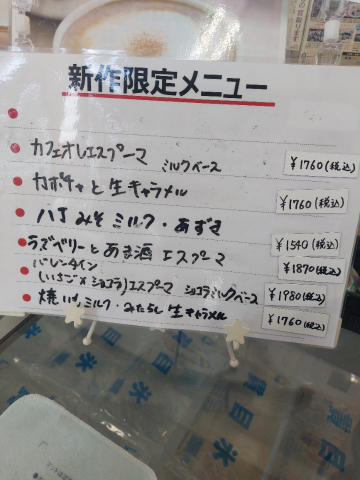 新作限定メニュー
カフェオレエスプーマ ミルクベース ¥1760(税込)
カボチャと生キャラメル ¥1760(税込)
八丁みそミルク・あずき ¥1540(税込)
ラズベリーとあま酒エスプーマ ¥1870(税込)
バレンタイン
(いちご×ショコラ)エスプーマ ショコラミルクベース ¥1980(税込)
焼いもミルク・みたらし生キャラメル ¥1760(税込)